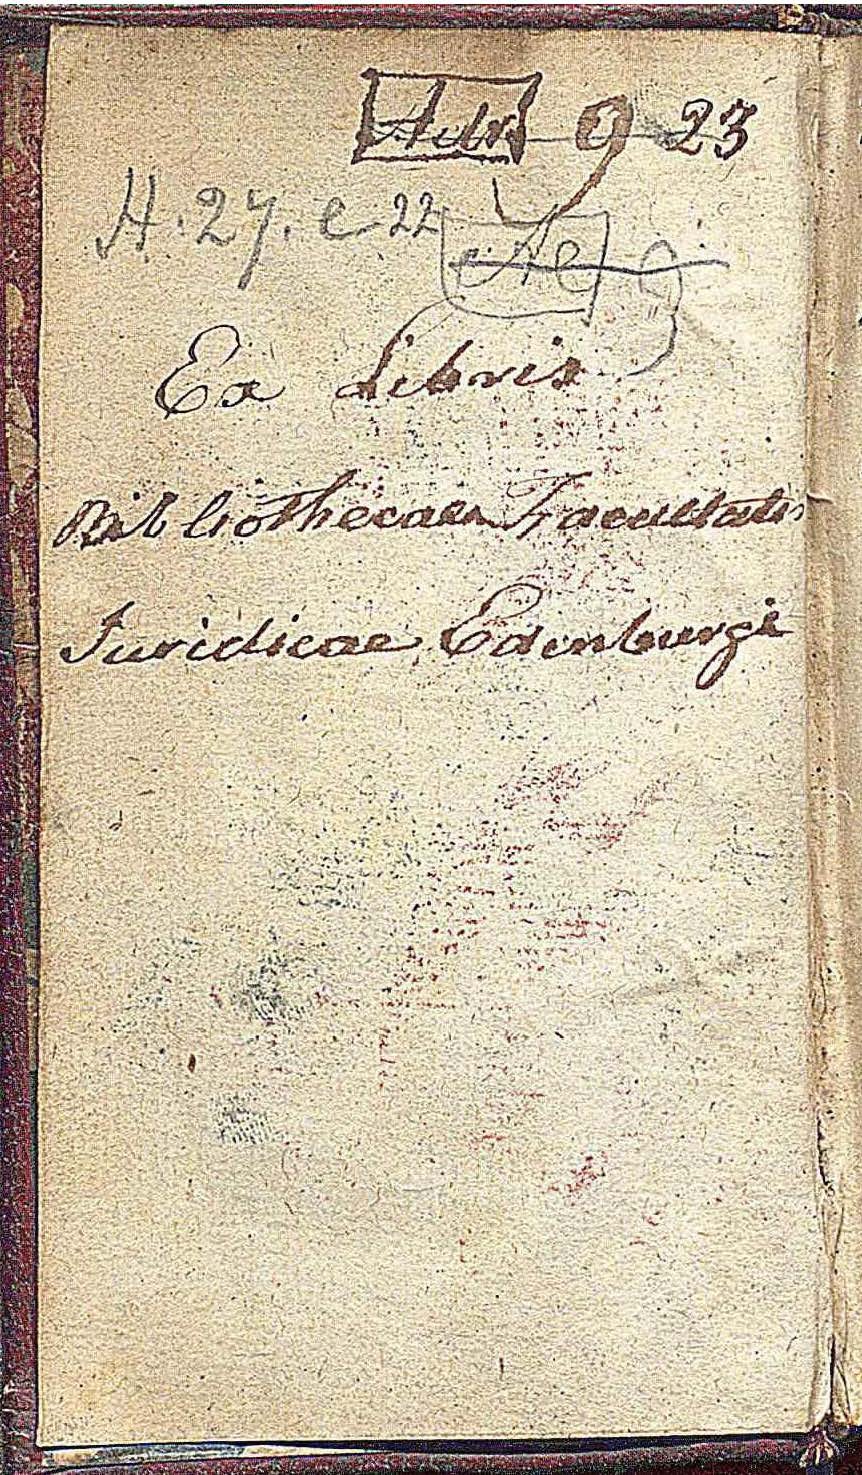 9 23
H.27.e.22
Ex Libris
Bibliothecae Facultatis
Juridicae Edenburgi